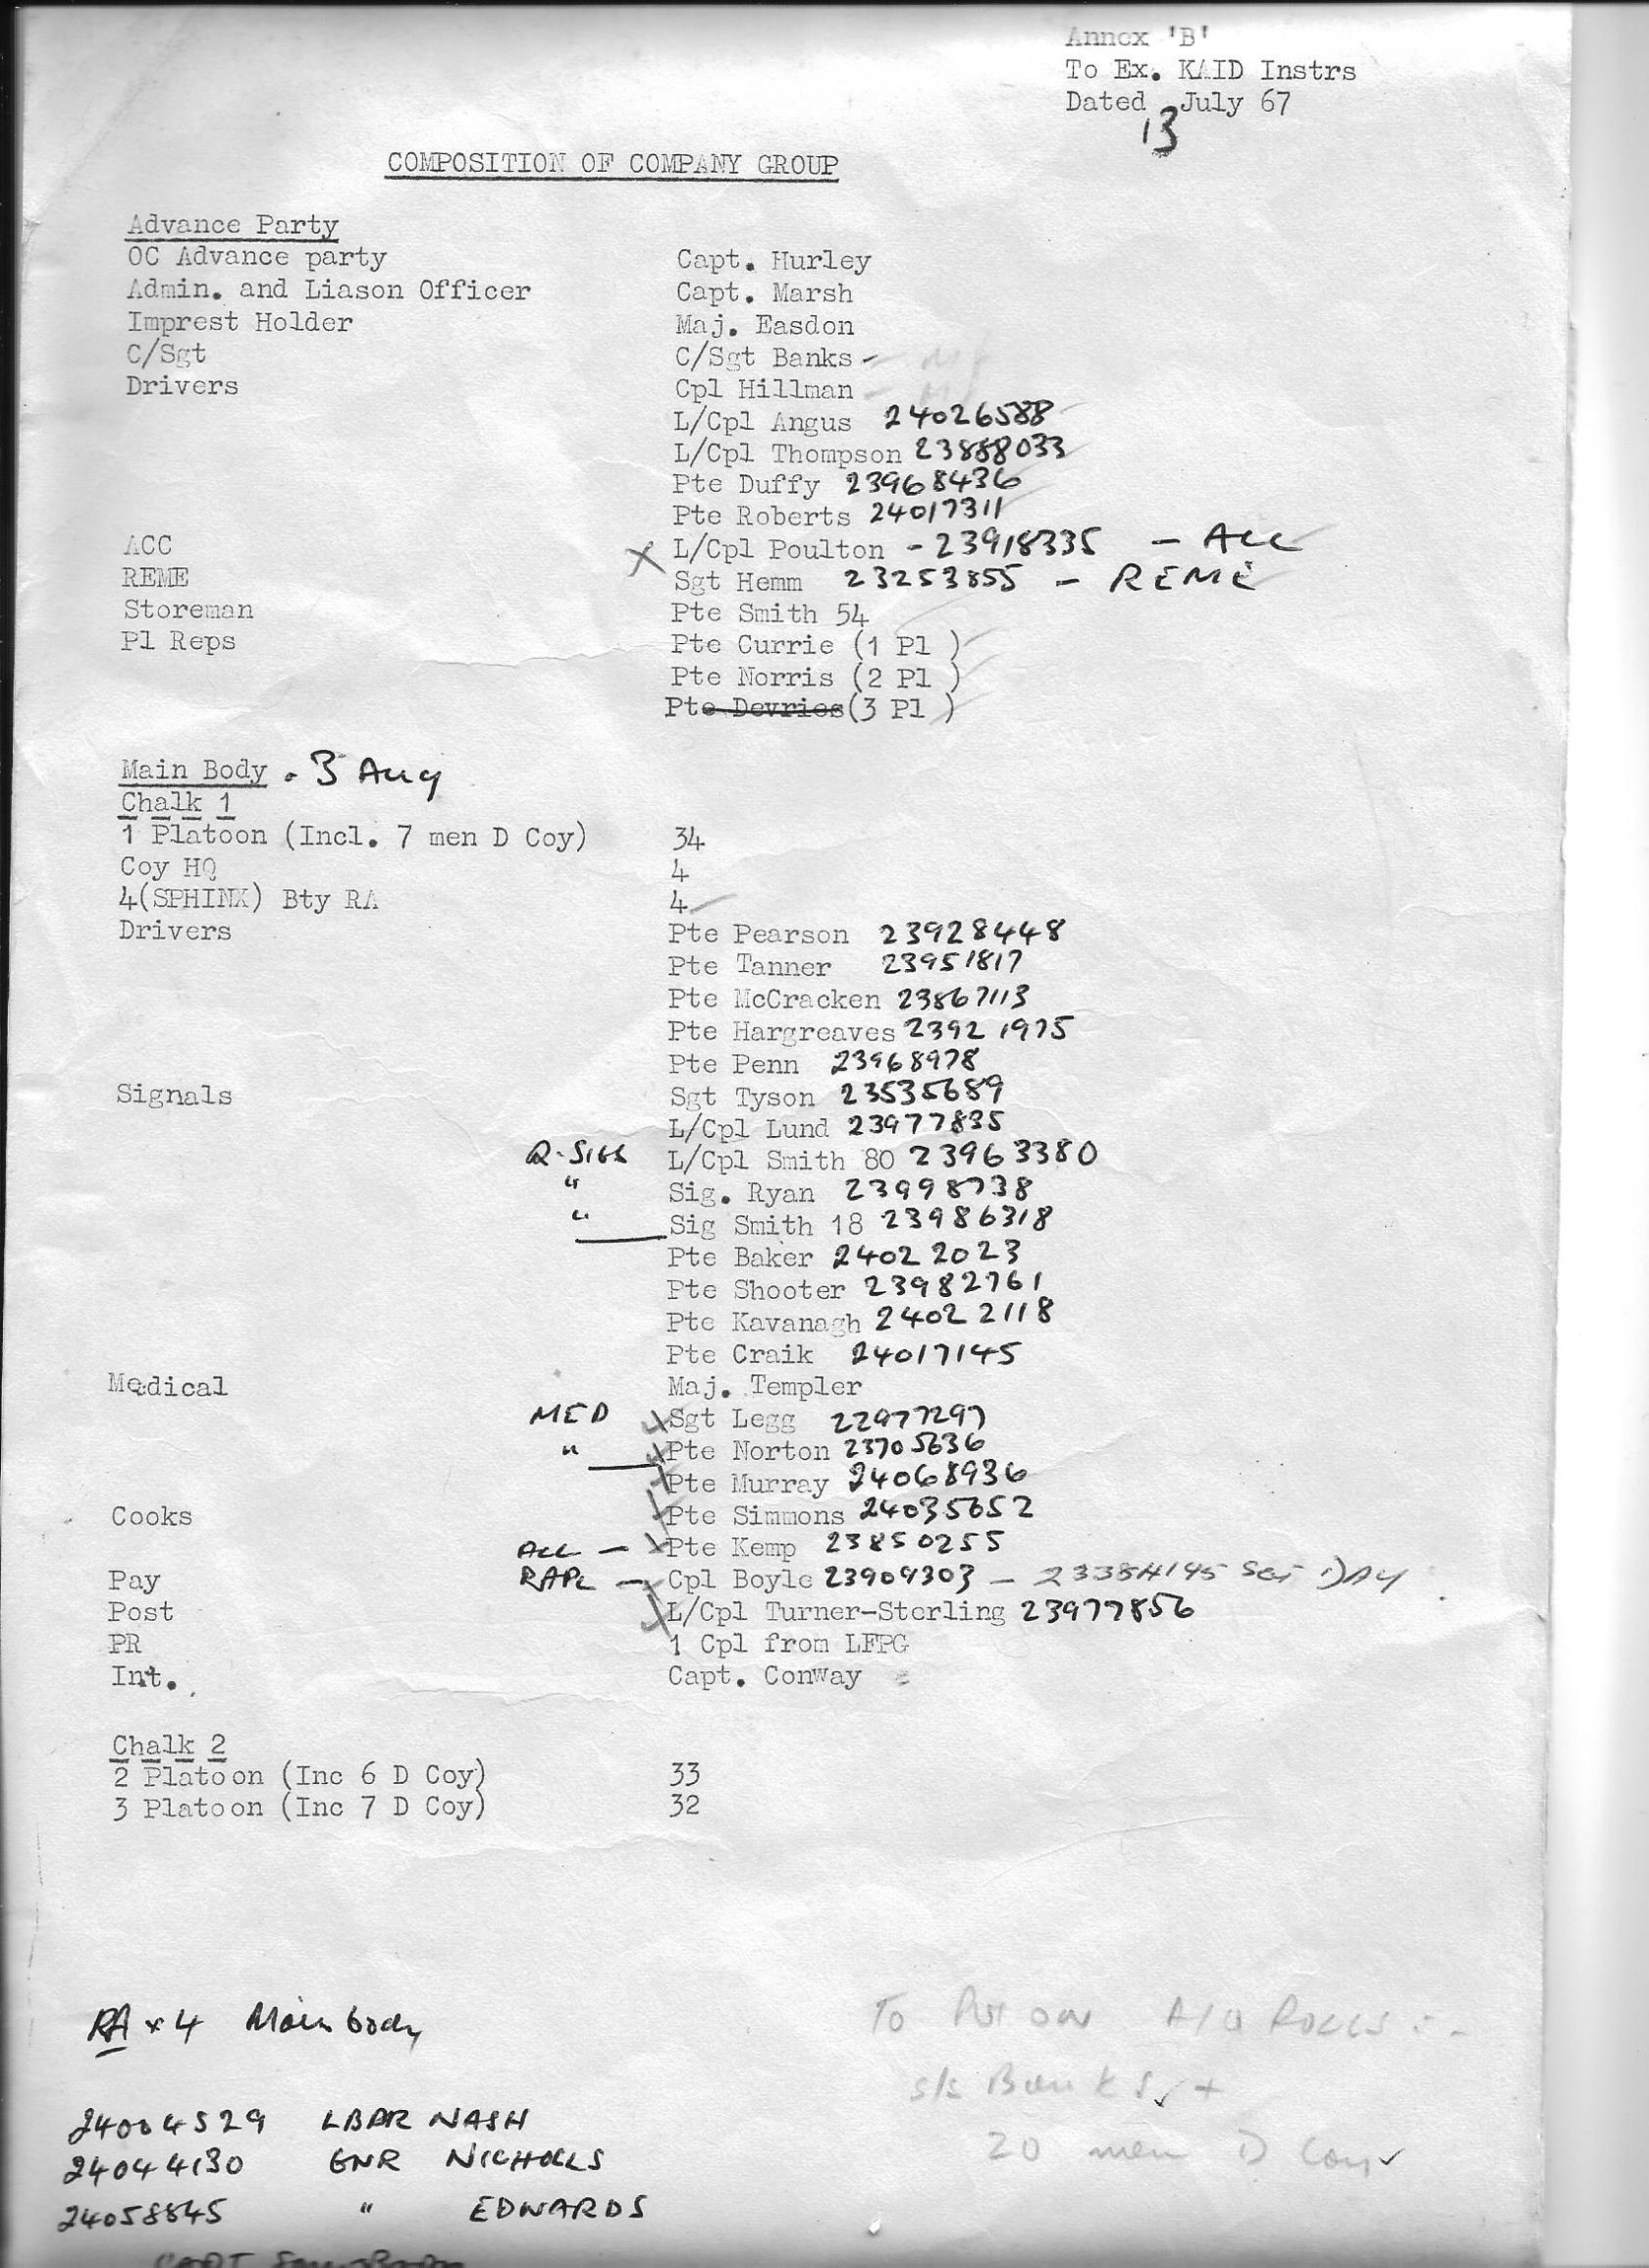 Annex 'B'
To Ex. KAID Instrs
Dated 13 July 67
COMPOSITION OF COMPANY GROUP
Advance Party
OC Advance party Capt. Hurley
Admin. and Liason Officer Capt. Marsh
Imprest Holder Maj. Easdon
C/Sgt C/Sgt Banks -
Drivers Cpl Hillman
L/Cpl Angus 24026588
L/Cpl Thompson 23888033
Pte Duffy 23968436
Pte Roberts 24017311
ACC X L/Cpl Poulton - 23918335 - ACC
REME Sgt Hemm 23253855 - REME
Storeman Pte Smith 54
Pl Reps Pte Currie (1 Pl )
Pte Norris (2 Pl )
Pte Devries (3 Pl )
Main Body . 3 Aug
Chalk 1
1 Platoon (Incl. 7 men D Coy) 34
Coy HQ 4
4(SPHINX) Bty RA 4
Drivers Pte Pearson 23928448
Pte Tanner 23951817
Pte McCracken 23867113
Pte Hargreaves 23921975
Pte Penn 23968978
Signals Sgt Tyson 23535689
L/Cpl Lund 23977835
R. SIGS L/Cpl Smith 80 23963380
" Sig. Ryan 23998738
" Sig Smith 18 23986318
Pte Baker 24022023
Pte Shooter 23982761
Pte Kavanagh 24022118
Pte Craik 24017145
Medical Maj. Templer
MED Sgt Legg 22977297
" Pte Norton 23705636
Pte Murray 24068936
Cooks Pte Simmons 24035652
ACC - Pte Kemp 23850255
Pay RAPC - Cpl Boyle 23909303 - 23384195 SGT DAY
Post L/Cpl Turner-Sterling 23977856
PR 1 Cpl from LFPG
Int. Capt. Conway
Chalk 2
2 Platoon (Inc 6 D Coy) 33
3 Platoon (Inc 7 D Coy) 32
RA x 4 Main body
24004529 LBDR NASH
24044130 GNR NICHOLLS
24058845 " EDWARDS
CAPT
To Put on A/Q ROLLS :-
S/S Banks +
20 men D Coy